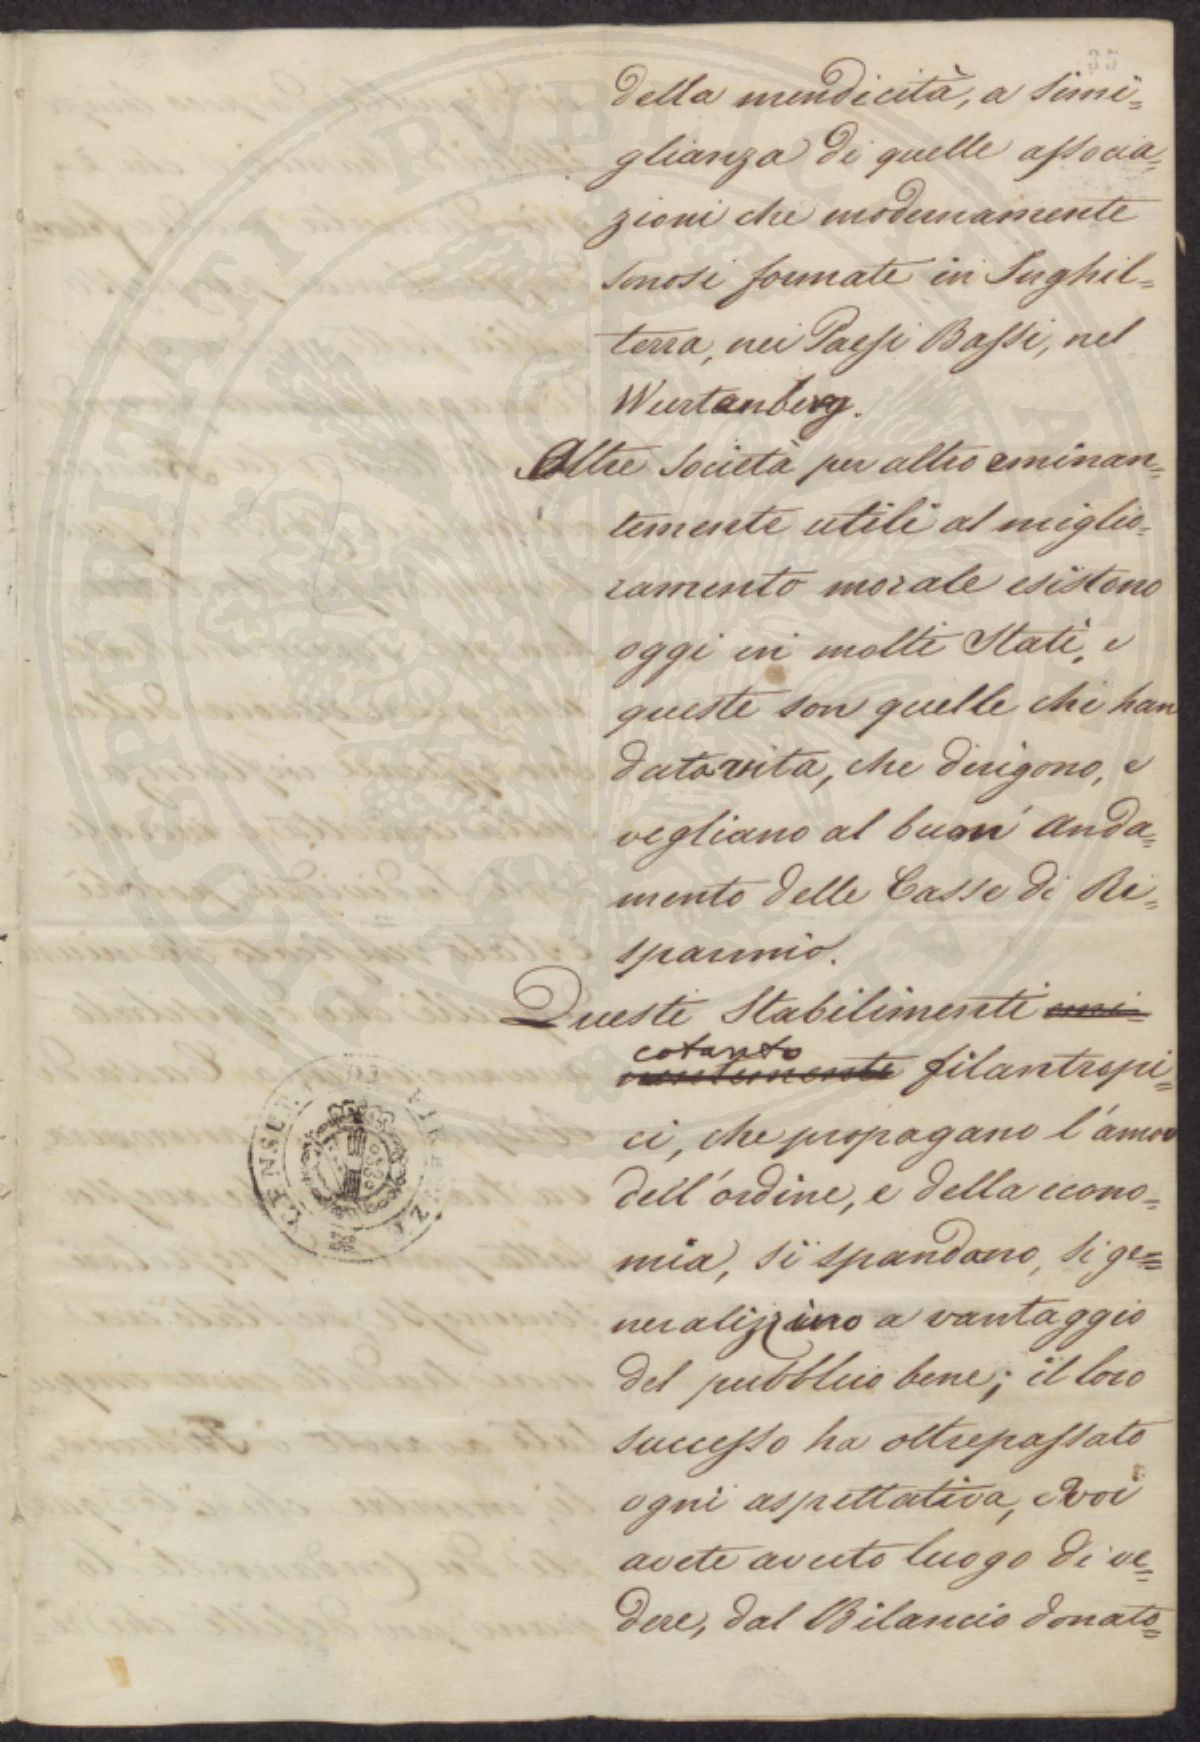 35
della mendicità, a simi=
glianza di quelle associa=
zioni che modernamente
sonosi formate in Inghil=
terra, nei Paesi Bassi, nel
Wurtenberg.
Altre Società per altro eminan=
temente utili al miglio=
ramento morale esistono
oggi in molti Stati, e
queste son quelle che han
dato vita, che dirigono, e
vegliano al buon' anda=
mento delle Casse di Ri=
sparmio.
Questi Stabilimenti emi=
cotanto
nentemente filantropi=
ci, che propagano l'amor
dell'ordine, e della econo=
mia, si spandono, si ge=
neralizzino a vantaggio
del pubblico bene; il loro
successo ha oltrepassato
ogni aspettativa, e voi
avete avuto luogo di ve=
dere, dal Bilancio donato=
PROSPERITATI PUBLICAE AUGENDAE